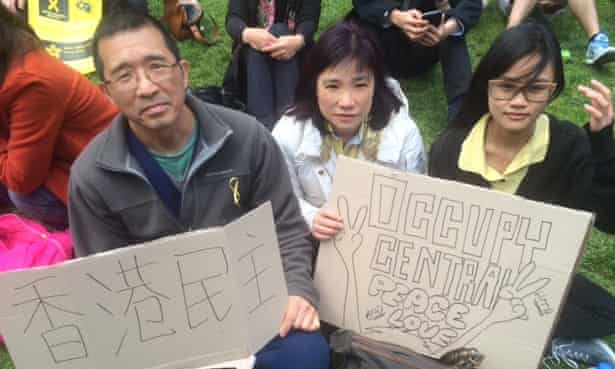 香港民主
OCCUPY
CENTRAL
PEACE
LOVE